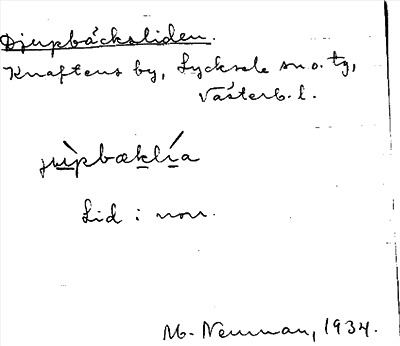 Djupbäcksliden.
Knaftens by, Lycksele sn o. tg,
Västerb. l.
jùpbæklía
Lid i norr.
M. Neuman, 1934.